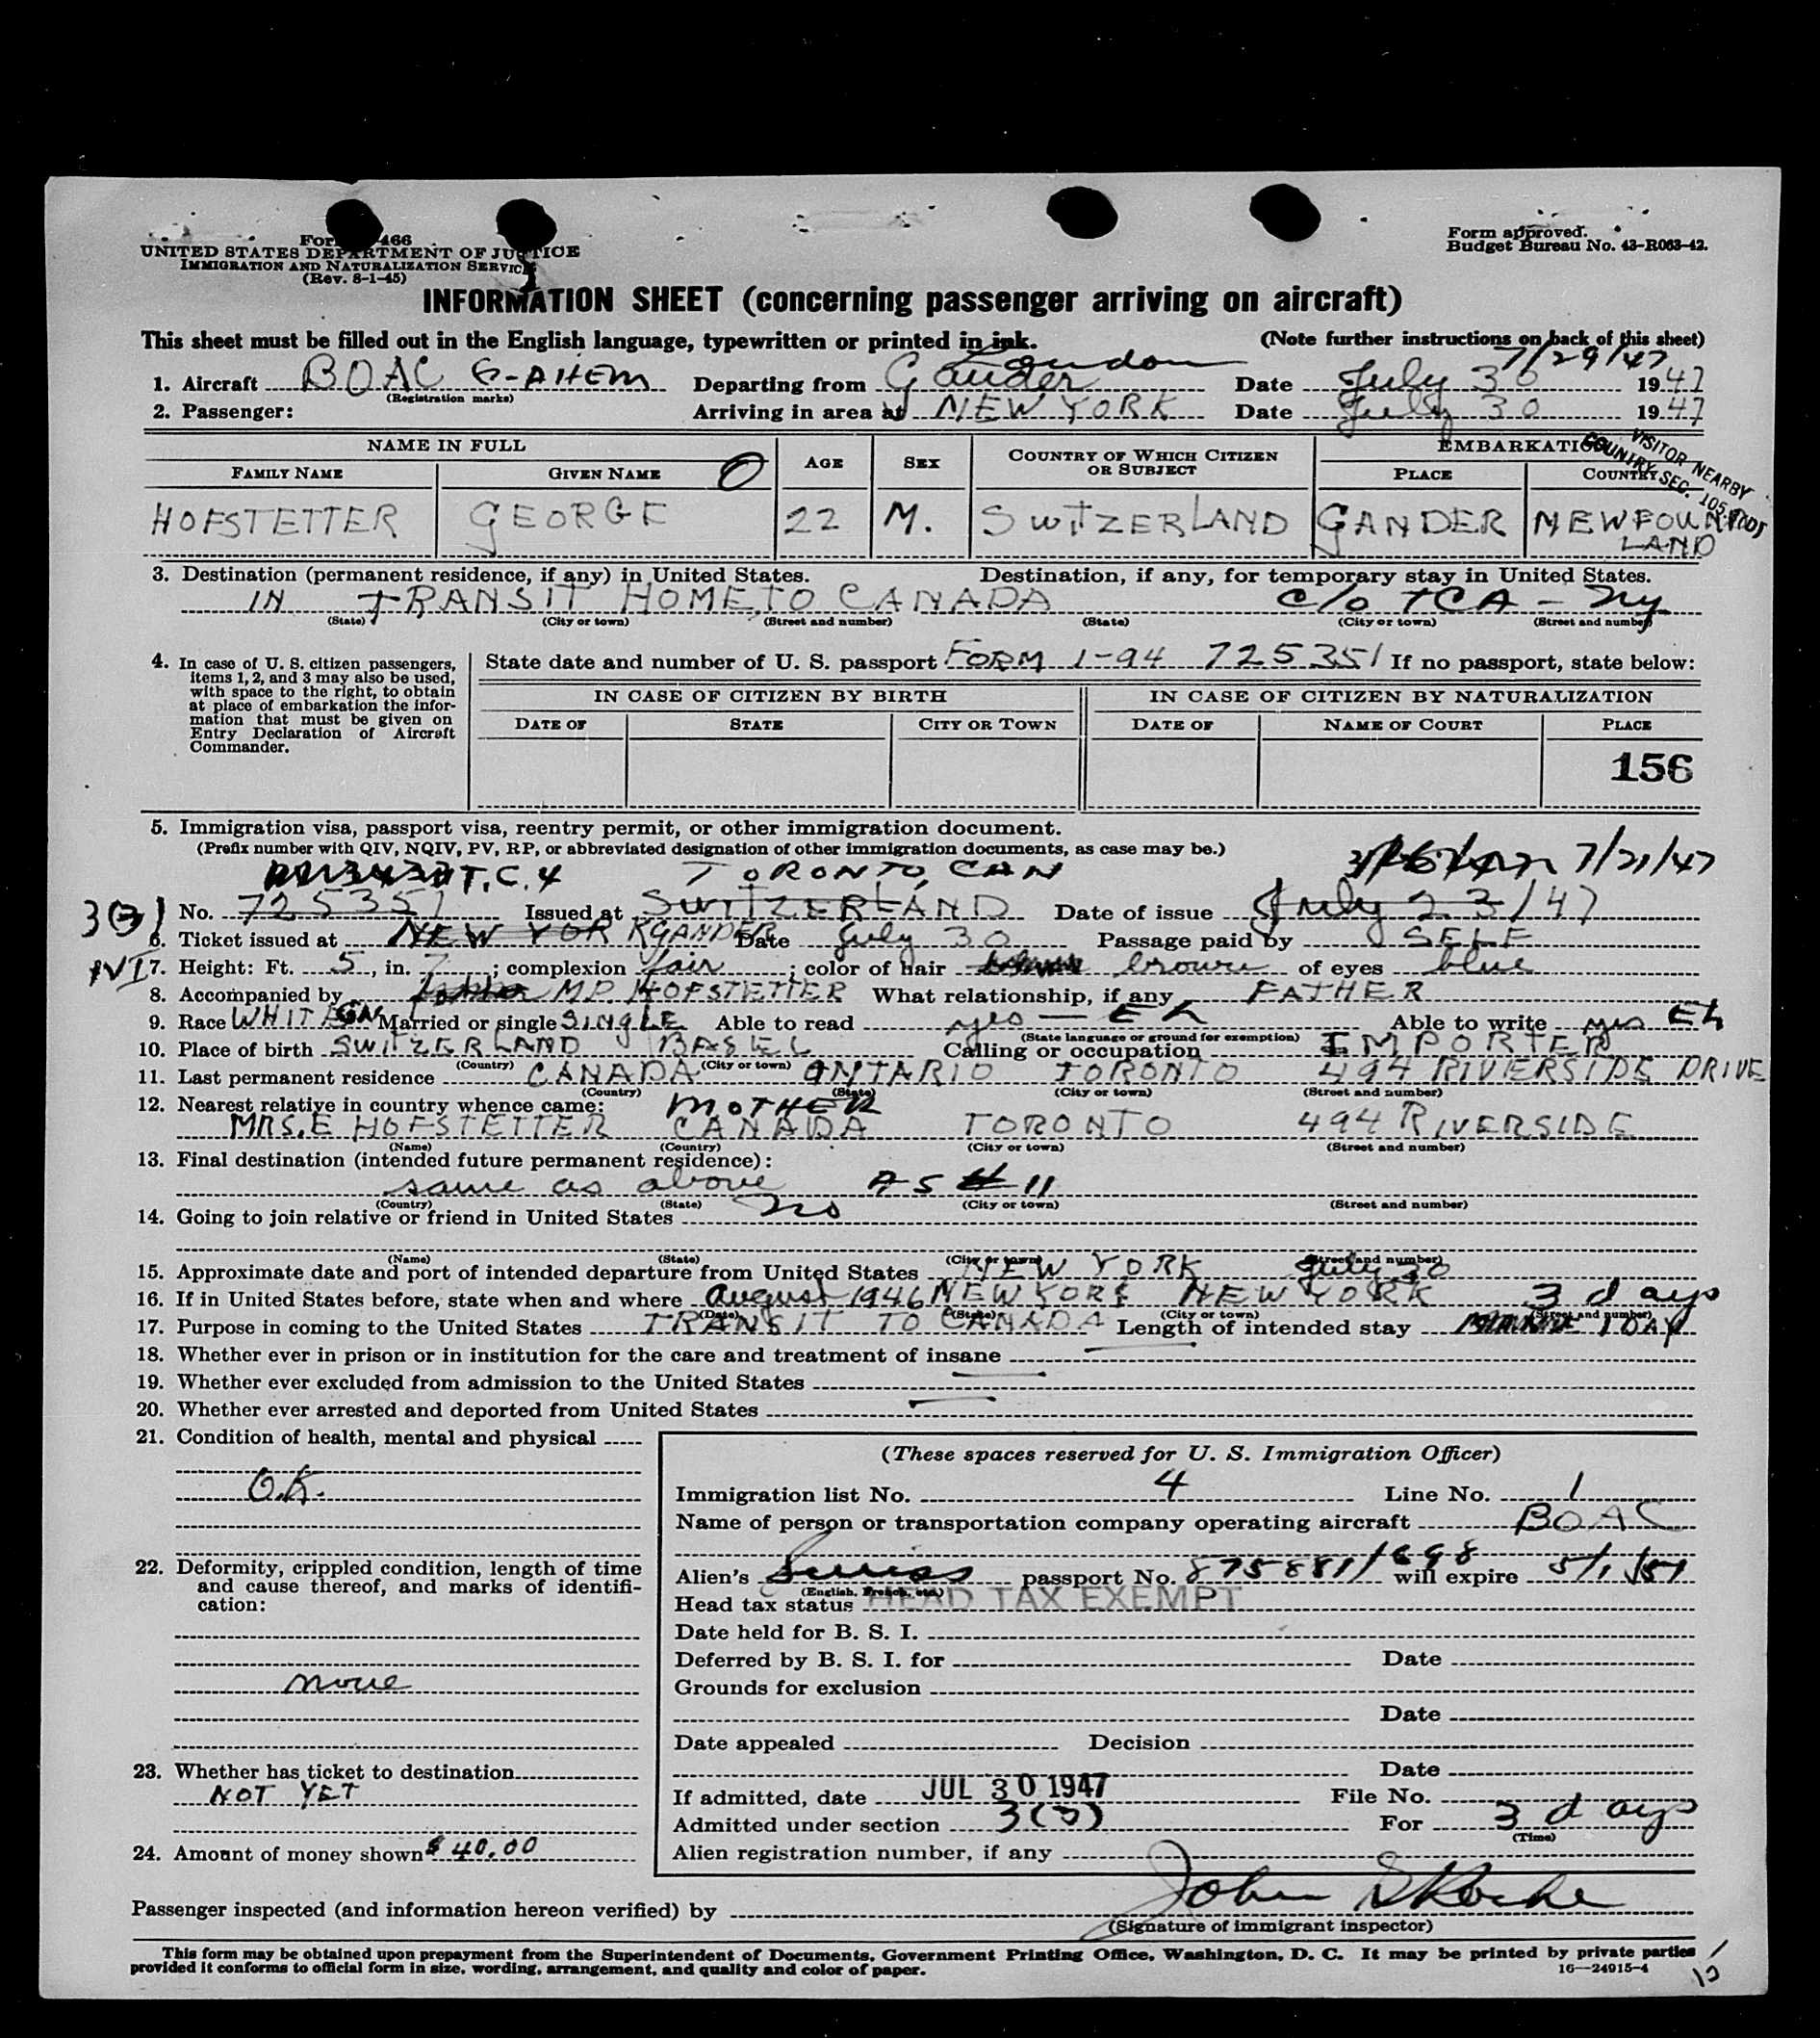 Form 466
UNITED STATES DEPARTMENT OF JUSTICE
IMMIGRATION AND NATURALIZATION SERVICE
(Rev. 8-1-45)
Form approved.
Budget Bureau No. 43-R063-42.
INFORMATION SHEET (concerning passenger arriving on aircraft)
This sheet must be filled out in the English language, typewritten or printed in ink. (Note further instructions on back of this sheet)
London 7/29/47
1. Aircraft BOAC G-AHEM Departing from Gander Date July 30 1947
(Registration marks)
2. Passenger: Arriving in area at NEW YORK Date July 30 1947
NAME IN FULL
FAMILY NAME GIVEN NAME AGE SEX COUNTRY OF WHICH CITIZEN OR SUBJECT EMBARKATION PLACE COUNTRY
VISITOR NEARBY
COUNTRY SEC.
HOFSTETTER GEORGE 22 M. SWITZERLAND GANDER NEWFOUND
LAND
3. Destination (permanent residence, if any) in United States. Destination, if any, for temporary stay in United States.
IN TRANSIT HOME TO CANADA c/o TCA - NY
(State) (City or town) (Street and number) (State) (City or town) (Street and number)
4. In case of U. S. citizen passengers, items 1, 2, and 3 may also be used, with space to the right, to obtain at place of embarkation the information that must be given on Entry Declaration of Aircraft Commander.
State date and number of U. S. passport FORM 1-94 725351 If no passport, state below:
IN CASE OF CITIZEN BY BIRTH IN CASE OF CITIZEN BY NATURALIZATION
DATE OF STATE CITY OR TOWN DATE OF NAME OF COURT PLACE
156
5. Immigration visa, passport visa, reentry permit, or other immigration document.
(Prefix number with QIV, NQIV, PV, RP, or abbreviated designation of other immigration documents, as case may be.)
T.C. 4 TORONTO, CAN 7/21/47
3(3) No. 725351 Issued at SWITZERLAND Date of issue July 23/47
6. Ticket issued at NEW YORK GANDER Date July 30 Passage paid by SELF
7. Height: Ft. 5, in. 7; complexion fair; color of hair brown of eyes blue
8. Accompanied by MP. HOFSTETTER What relationship, if any FATHER
9. Race WHITE Married or single SINGLE Able to read yes — Eh Able to write yes Eh
(State language or ground for exemption)
10. Place of birth SWITZERLAND BASEL Calling or occupation IMPORTER
(Country) (City or town)
11. Last permanent residence CANADA ONTARIO TORONTO 494 RIVERSIDE DRIVE
(Country) (State) (City or town) (Street and number)
12. Nearest relative in country whence came: MOTHER
MRS. E HOFSTETTER CANADA TORONTO 494 RIVERSIDE
(Name) (Country) (City or town) (Street and number)
13. Final destination (intended future permanent residence):
same as above AS # 11
(Country) (State) (City or town) (Street and number)
14. Going to join relative or friend in United States no
(Name) (State) (City or town) (Street and number)
15. Approximate date and port of intended departure from United States NEW YORK July 30
16. If in United States before, state when and where August 1946 NEW YORK NEW YORK 3 days
(Date) (State) (City or town) (Street and number)
17. Purpose in coming to the United States TRANSIT TO CANADA Length of intended stay 1 DAY
18. Whether ever in prison or in institution for the care and treatment of insane
19. Whether ever excluded from admission to the United States
20. Whether ever arrested and deported from United States
21. Condition of health, mental and physical
O.K.
22. Deformity, crippled condition, length of time and cause thereof, and marks of identification:
none
23. Whether has ticket to destination
NOT YET
24. Amount of money shown $ 40.00
(These spaces reserved for U. S. Immigration Officer)
Immigration list No. 4 Line No. 1
Name of person or transportation company operating aircraft BOAC
Alien's Swiss passport No. 875881/698 will expire 5/1/51
(English, French, etc.)
Head tax status HEAD TAX EXEMPT
Date held for B. S. I.
Deferred by B. S. I. for Date
Grounds for exclusion
Date
Date appealed Decision
Date
If admitted, date JUL 30 1947 File No.
Admitted under section 3(3) For 3 days
(Time)
Alien registration number, if any
Passenger inspected (and information hereon verified) by John
(Signature of immigrant inspector)
This form may be obtained upon prepayment from the Superintendent of Documents, Government Printing Office, Washington, D. C. It may be printed by private parties
provided it conforms to official form in size, wording, arrangement, and quality and color of paper.
16—24915-4